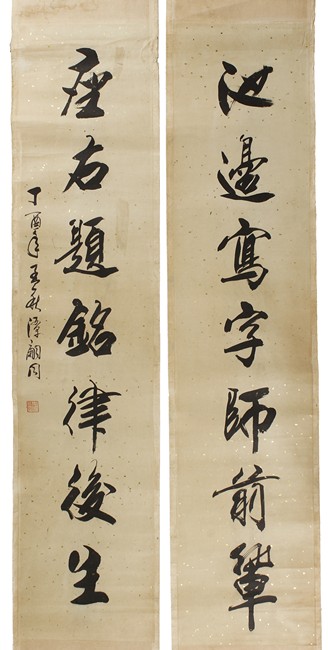 池邊寫字師前輩
座右題銘律後生
丁酉年春秋譚嗣同